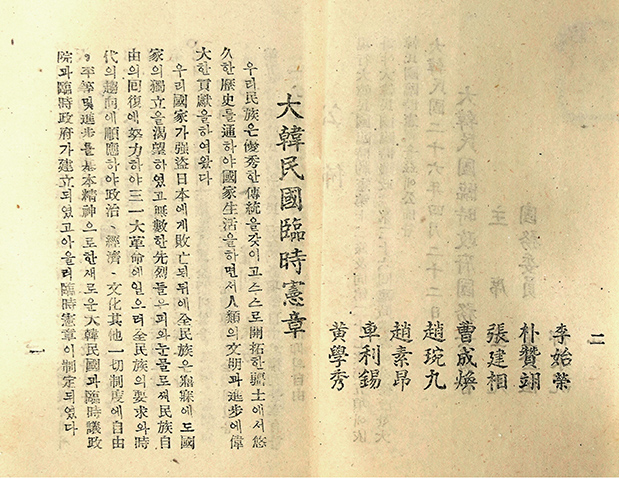 二
李始榮
朴贊翊
張建相
曹成煥
趙琬九
趙素昻
車利錫
黃學秀
大韓民國臨時憲章
우리民族은優秀한傳統을갖이고스스로開拓한疆土에서悠
久한歷史를通하야國家生活을하면서人類의文明과進步에偉
大한貢獻을하여왔다
우리國家가强盜日本에게敗亡된뒤에全民族은寤寐에도國
家의獨立을渴望하였고無數한先烈들은피와눈물로써民族自
由의回復에努力하야三一大革命에일으러全民族의要求와時
代의趨向에順應하야政治、經濟、文化其他一切制度에自由
、平等및進步를基本精神으로한새로운大韓民國과臨時議政
院과臨時政府가建立되였고아울러臨時憲章이制定되였다
一